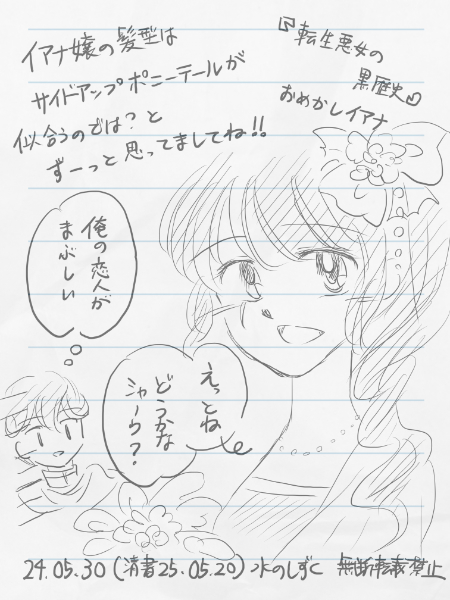 イアナ嬢の髪型は
サイドアップポニーテールが
似合うのでは?と
ずーっと思ってましてね!!
『転生悪女の
黒歴史』
おめかしイアナ
俺の恋人が
まぶしい
えっとね
どうかな
シャーウ?
24.05.30(清書25.05.20)水のしずく 無断転載禁止